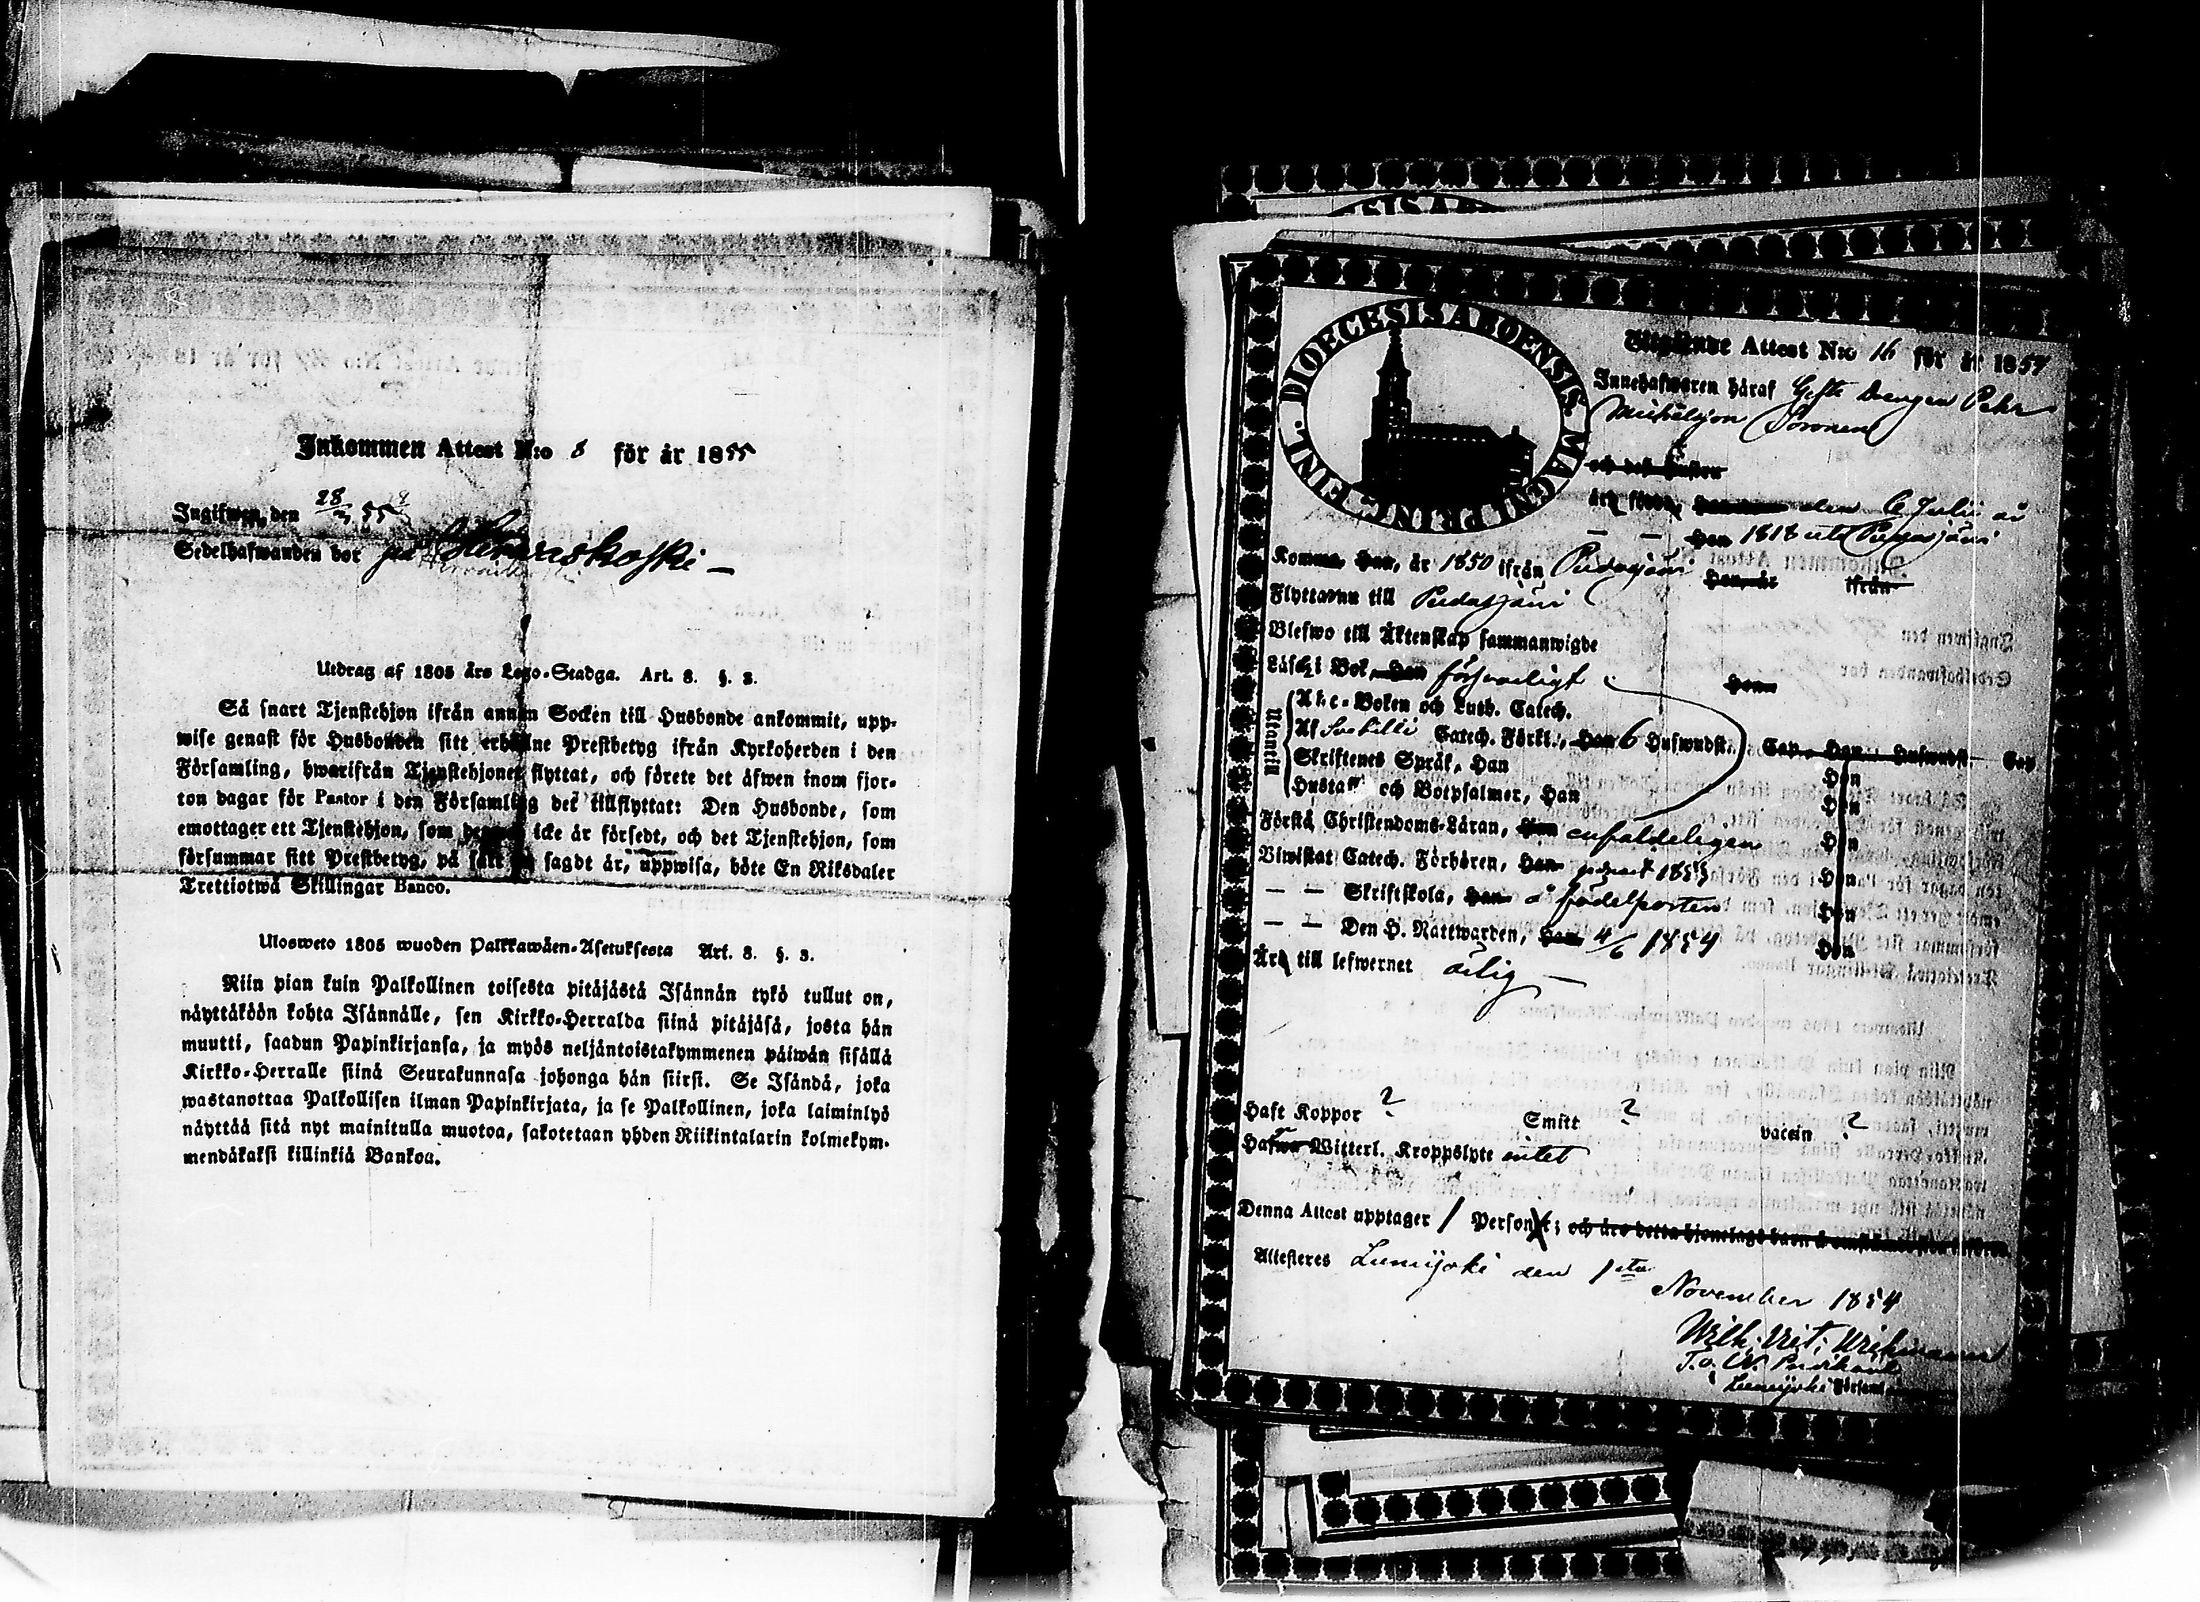 Inkommen Attest N:o 8 för år 1855
Ingifwen, den 28/3 55
Sedelhafwanden bor på Hirwaskoski –
Utdrag af 1805 års Lego-Stadga. Art. 8. §. 3.
Så snart Tjenstehjon ifrån annan Socken till Husbonde ankommit, upp-
wise genast för Husbonden sitt erhållne Prestbetyg ifrån Kyrkoherden i den
Församling, hwarifrån Tjenstehjonet flyttat, och förete det äfwen inom fjor-
ton dagar för Pastor i den Församling det tillflyttat: Den Husbonde, som
emottager ett Tjenstehjon, som dermed icke är försedt, och det Tjenstehjon, som
försummar sitt Prestbetyg, på sätt sagdt är, uppwisa, böte En Riksdaler
Trettiotwå Skillingar Banco.
Ulosweto 1805 wuoden Palkkawäen-Asetuksesta Art. 8. §. 3.
Niin pian kuin Palkollinen toisesta pitäjästä Isännän tykö tullut on,
näyttäköön kohta Isännälle, sen Kirkko-Herralda siinä pitäjäsä, josta hän
muutti, saadun Papinkirjansa, ja myös neljäntoistakymmenen päiwän sisällä
Kirkko-Herralle siinä Seurakunnasa johonga hän siirsi. Se Isändä, joka
wastanottaa Palkollisen ilman Papinkirjata, ja se Palkollinen, joka laiminlyö
näyttää sitä nyt mainitulla muotoa, sakotetaan yhden Riikintalarin kolmekym-
mendäkaksi killinkiä Bankoa.
DIOECESIS ABOENSIS. MAGNI PRINC. FINL.
Utgående Attest N:o 16 för år 1854
Innehafwaren häraf Gifte Drengen Pehr
Michelsson Soronen
och dess hustru
är född, den 6 Julii år
— — Hon 1818 uti Pudasjärvi
Komma, Han, år 1850 ifrån Pudasjärvi Hon, år ifrån
Flyttar nu till Pudasjärvi
Blefwo till Äktenskap sammanwigde
Läser i Bok, Han försvarligt Hon
Utantill
Abc-Boken och Luth. Catech.
Af Svebilii Catech. Förkl., Han 6 Hufwudst. Cap., Hon Hufwudst. Cap
Skriftenes Språk, Han Hon
Hustafl. och Botpsalmer, Han Hon
Förstå Christendoms-Läran, Han enfaldeligen Hon
Biwistat Catech. Förhören, Han 1853 Hon
— — Skriftskola, Han å födelseorten Hon
— — Den H. Nattwarden, Han 4/6 1854 Hon
Är till lefwernet ärlig —
Haft Koppor ? Smitt ? vaccin ?
Hafwa Witterl. Kroppslyte intet
Denna Attest upptager 1 Person;
Attesteres Lumijoki den 1sta
November 1854
Wilh:
Lumijoki Förs: